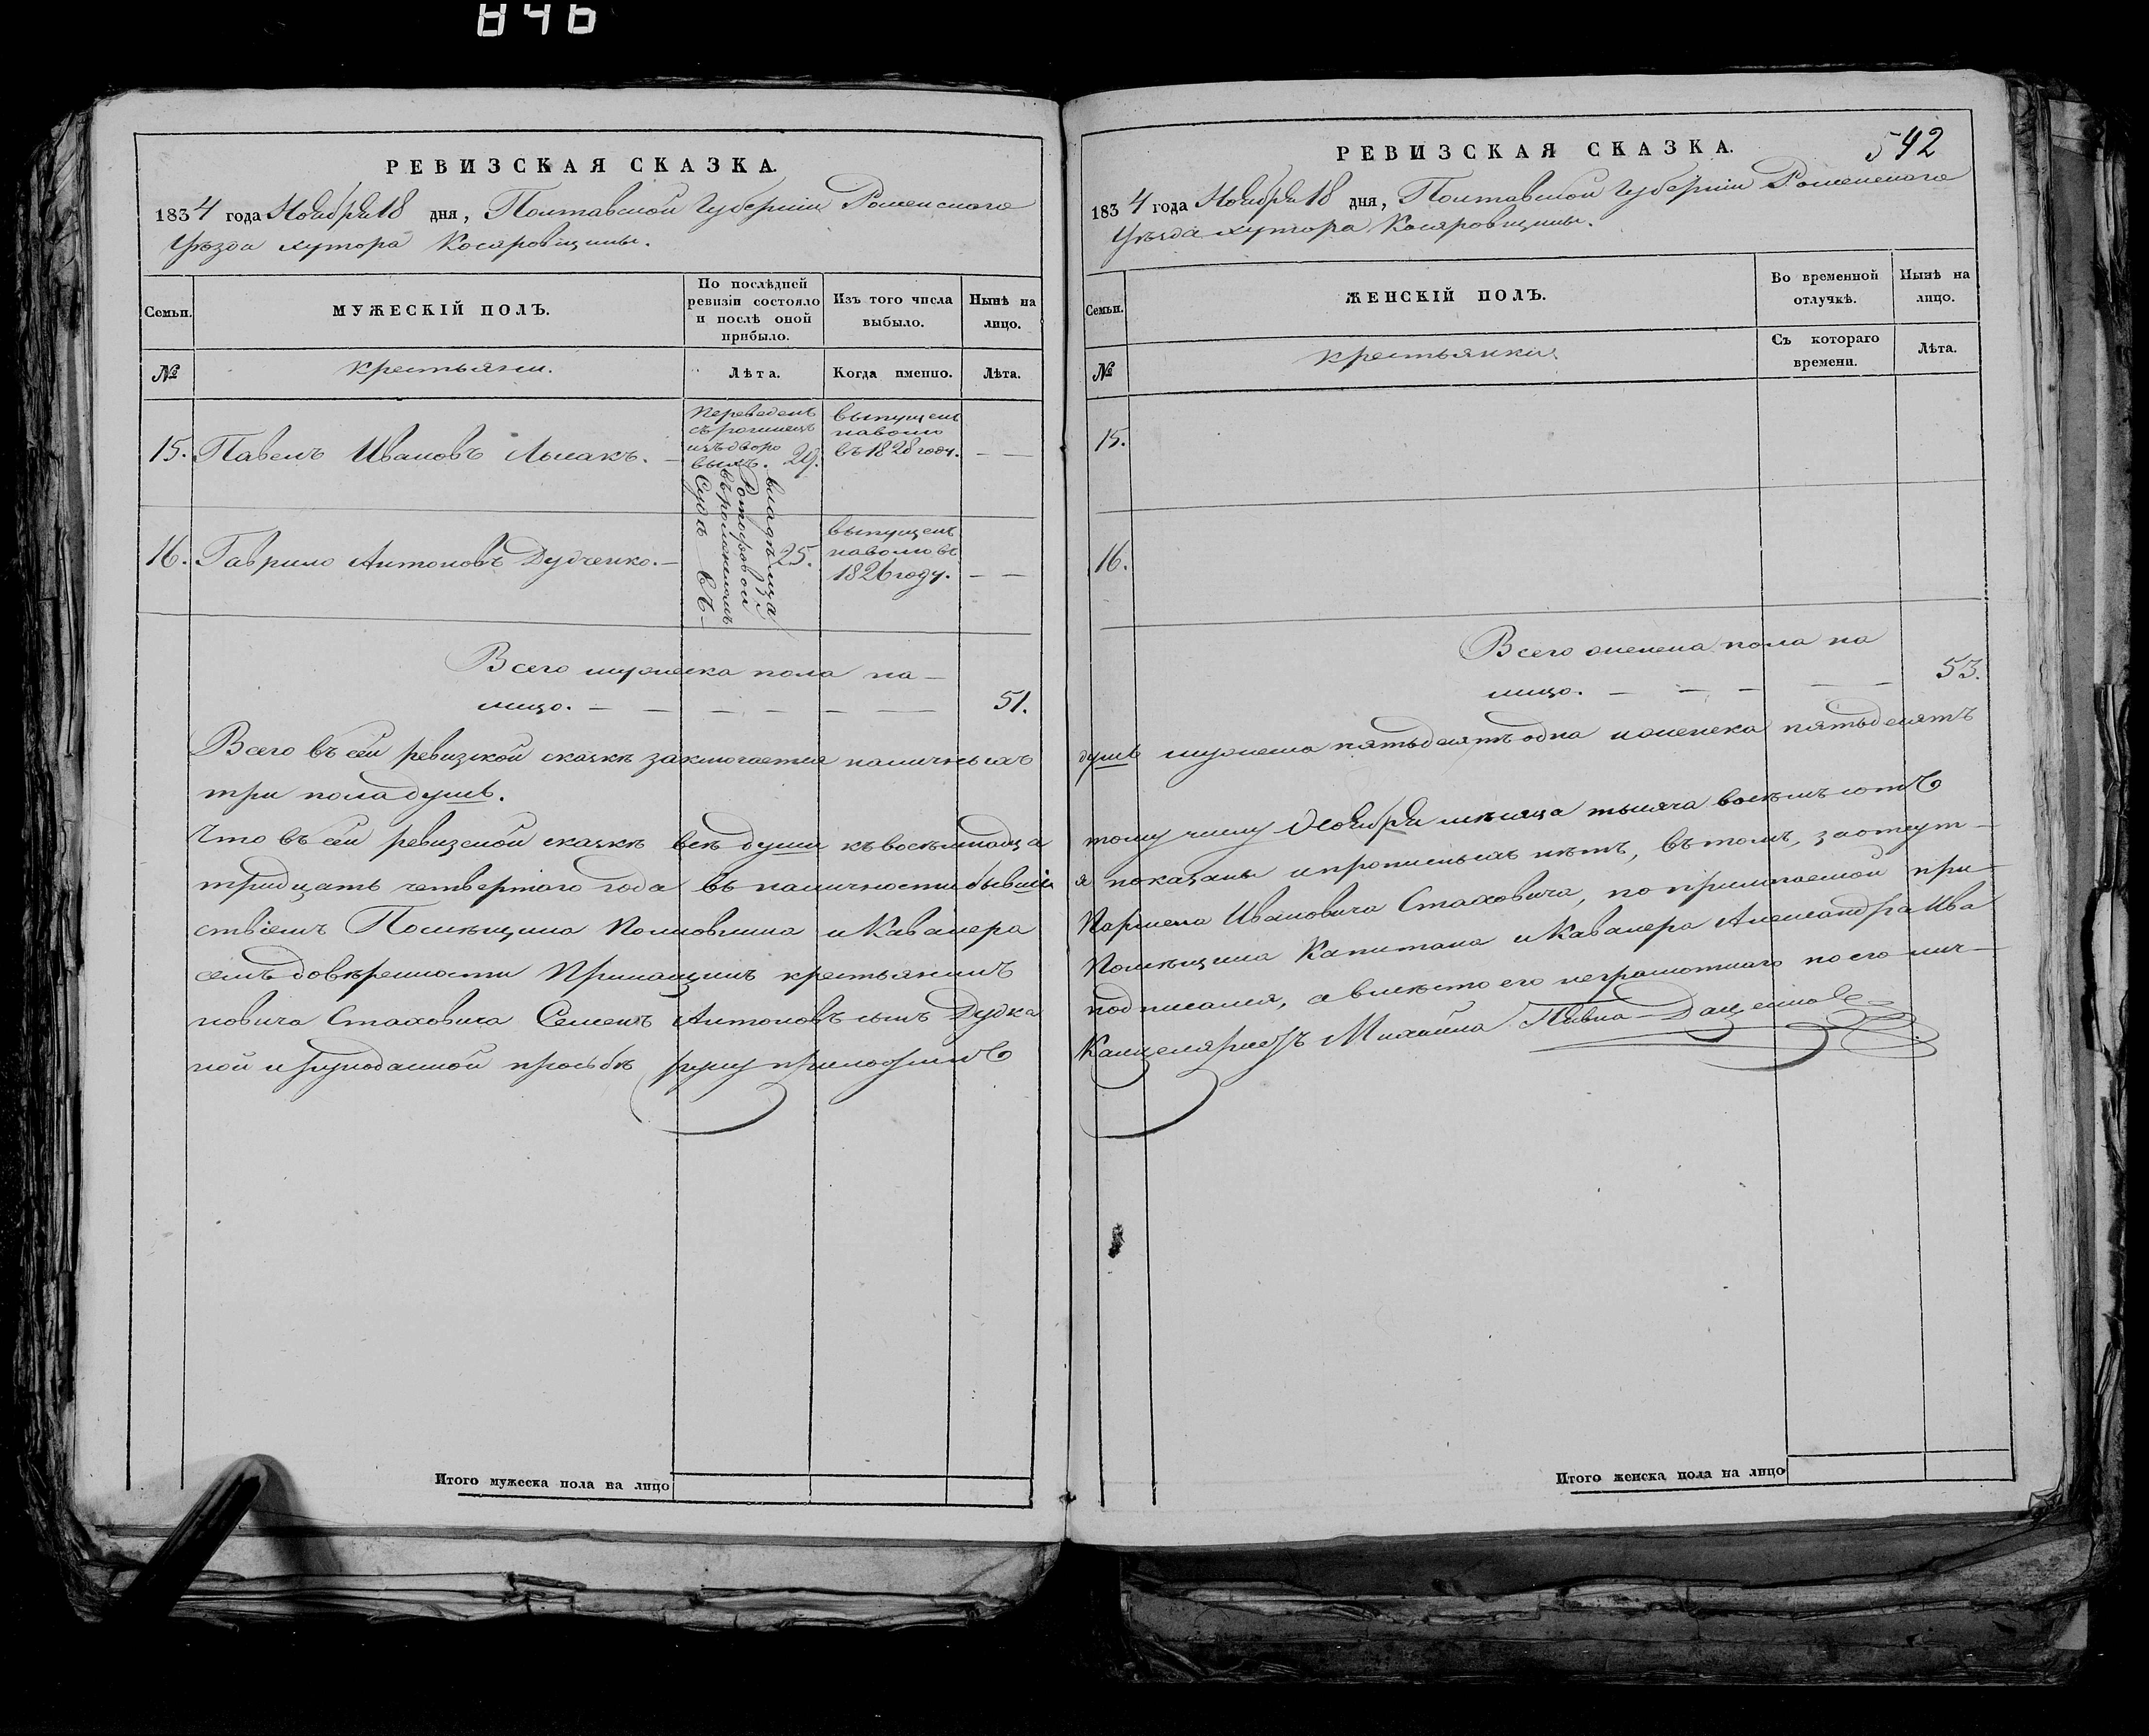 846
РЕВИЗСКАЯ СКАЗКА.
1834 года Ноября 18 дня, Полтавской Губерніи Роменского
Уѣзда хутора Косяровщины.
Семьи.
МУЖЕСКІЙ ПОЛЪ.
По послѣдней
ревизіи состояло
и послѣ оной
прибыло.
Изъ того числа
выбыло.
Нынѣ на
лицо.
№
крестьяни.
Лѣта.
Когда именно.
Лѣта.
15. Павелъ Ивановъ
Переведенъ
изъ дворо
выхъ. 29.
выпущенъ
наволю
въ 1828 году.
16. Гаврило Антоновъ Дудченко.
25.
владѣлица
выпущенъ
наволю въ
1826 году.
Всего мужеска пола на
лицо. 51.
Всего въ сей ревизской сказкѣ заключается наличныхъ
три пола душъ.
Что въ сей ревизской сказкѣ всѣ души къ восѣмнадца
тридцать четвертого года въ наличности бывшія
ствіемъ Помѣщика Полковника и Кавалера
семъ довѣренности Прикащикъ крестьянинъ
новича Стаховича Семенъ Антоновъ сынъ Дудка
ной и рукоданной прозьбѣ руку приложилъ
Итого мужеска пола на лицо
РЕВИЗСКАЯ СКАЗКА.
542
1834 года Ноября 18 дня, Полтавской Губерніи Роменского
Уѣзда хутора Косяровщины.
Семьи.
ЖЕНСКІЙ ПОЛЪ.
Во временной
отлучкѣ.
Нынѣ на
лицо.
№
крестьянки
Съ котораго
времени.
Лѣта.
15.
16.
Всего женска пола на
лицо. 53.
душъ мужеска пятьдесятъ одна и женска пятьдесятъ
тому числу Ноября мѣсяца тысяча восѣмъ сотъ
я показаны и прописныхъ нѣтъ, въ томъ, за отсут
Ивановича Стаховича, по прилагаемой при
Помѣщика Капитана и Кавалера Александра Ива
подписался, а вмѣсто его неграмотнаго по его лич
Канцеляристъ Михайла
Итого женска пола на лицо